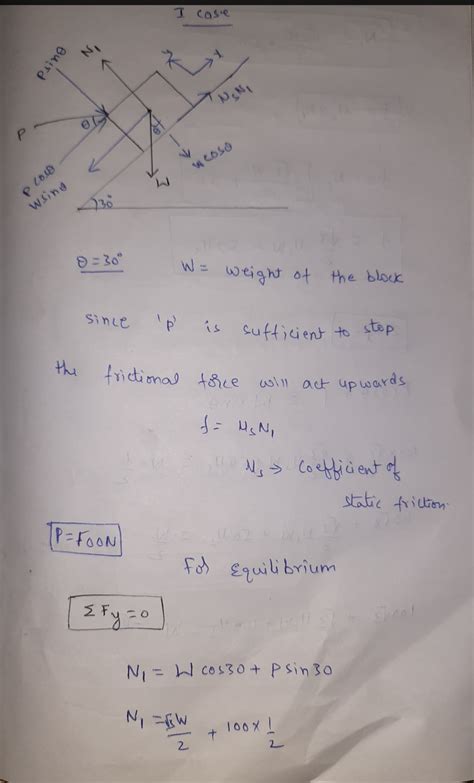 I case
N₁
y
x
Psinθ
μₛN₁
P
θ
θ
Pcosθ
Wsinθ
Wcosθ
W
30°
θ = 30°
W = weight of the block
since 'p' is sufficient to stop
the frictional force will act upwards
f = μₛN₁
μₛ → Coefficient of
static friction.
For Equilibrium
ΣFy = 0
N₁ = W cos30 + Psin30
N₁ = √3W/2 + 100 × 1/2